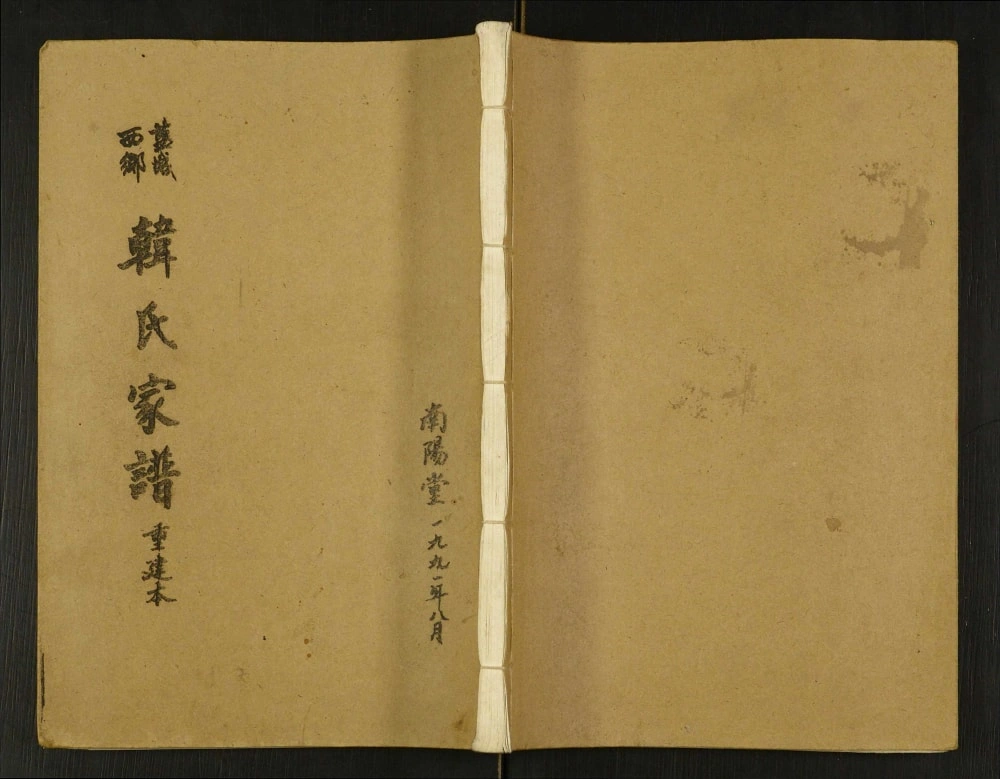 南陽堂 一九九一年八月
城
西鄉
韓氏家譜 重建本